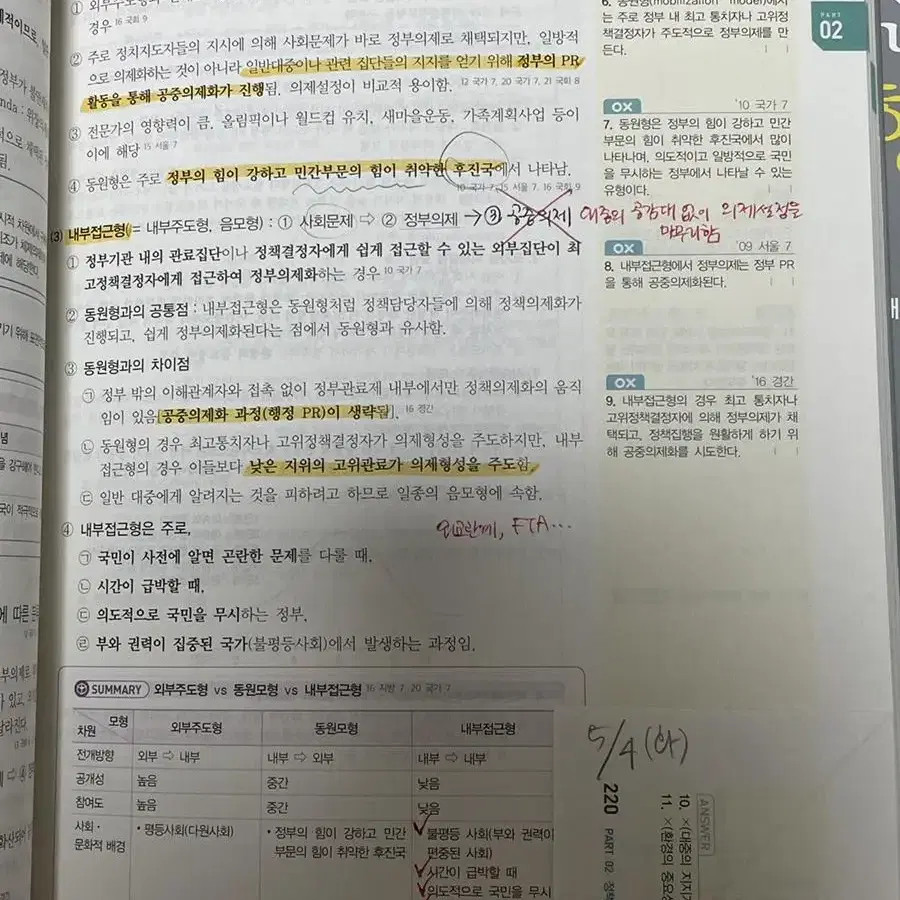 ① 외부주도형의
경우 16 국회 9
② 주로 정치지도자들의 지시에 의해 사회문제가 바로 정부의제로 채택되지만, 일방적
으로 의제화하는 것이 아니라 일반대중이나 관련 집단들의 지지를 얻기 위해 정부의 PR
활동을 통해 공중의제화가 진행됨. 의제설정이 비교적 용이함. 12 국가 7, 20 국가 7, 21 국회 8
③ 전문가의 영향력이 큼. 올림픽이나 월드컵 유치, 새마을운동, 가족계획사업 등이
이에 해당 15 서울 7
④ 동원형은 주로 정부의 힘이 강하고 민간부문의 힘이 취약한 후진국에서 나타남.
10 국가 7, 15 서울 7, 16 국회 9
(3) 내부접근형(= 내부주도형, 음모형) : ① 사회문제 ⇨ ② 정부의제 → ③ 공중의제
① 정부기관 내의 관료집단이나 정책결정자에게 쉽게 접근할 수 있는 외부집단이 최
고정책결정자에게 접근하여 정부의제화하는 경우 10 국가 7
② 동원형과의 공통점 : 내부접근형은 동원형처럼 정책담당자들에 의해 정책의제화가
진행되고, 쉽게 정부의제화된다는 점에서 동원형과 유사함.
③ 동원형과의 차이점
㉠ 정부 밖의 이해관계자와 접촉 없이 정부관료제 내부에서만 정책의제화의 움직
임이 있음[공중의제화 과정(행정 PR)이 생략됨]. 16 경간
㉡ 동원형의 경우 최고통치자나 고위정책결정자가 의제형성을 주도하지만, 내부
접근형의 경우 이들보다 낮은 지위의 고위관료가 의제형성을 주도함.
㉢ 일반 대중에게 알려지는 것을 피하려고 하므로 일종의 음모형에 속함.
④ 내부접근형은 주로,
외교관계, FTA...
㉠ 국민이 사전에 알면 곤란한 문제를 다룰 때,
㉡ 시간이 급박할 때,
㉢ 의도적으로 국민을 무시하는 정부,
㉣ 부와 권력이 집중된 국가(불평등사회)에서 발생하는 과정임.
SUMMARY 외부주도형 vs 동원모형 vs 내부접근형 16 지방 7, 20 국가 7
차원 모형 외부주도형 동원모형 내부접근형
전개방향 외부 ⇨ 내부 내부 ⇨ 외부 내부 ⇨ 내부
공개성 높음 중간 낮음
참여도 높음 중간 낮음
사회· 문화적 배경
• 평등사회(다원사회)
• 정부의 힘이 강하고 민간
부문의 힘이 취약한 후진국
불평등 사회(부와 권력이
편중된 사회)
시간이 급박할 때
의도적으로 국민을 무시
PART
02
6. 동원형(mobilization model)에서
는 주로 정부 내 최고 통치자나 고위정
책결정자가 주도적으로 정부의제를 만
든다.
OX '10 국가 7
7. 동원형은 정부의 힘이 강하고 민간
부문의 힘이 취약한 후진국에서 많이
나타나며, 의도적이고 일방적으로 국민
을 무시하는 정부에서 나타날 수 있는
유형이다.
OX '09 서울 7
8. 내부접근형에서 정부의제는 정부 PR
을 통해 공중의제화된다.
OX '16 경간
9. 내부접근형의 경우 최고 통치자나
고위정책결정자에 의해 정부의제가 채
택되고, 정책집행을 원활하게 하기 위
해 공중의제화를 시도한다.
5/4 (화)
220 PART 02 정책
ANSWER
10. ×(대중의 지지가
11. ×(환경의 중요성